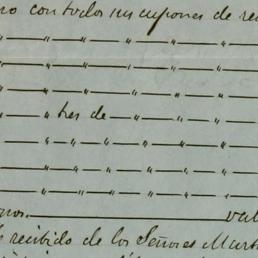 no con todos sus cupones de re
— " — " — " — " — " —
— " — " — " — " — " —
— " — " — " — " — " —
— " tres de — " — " — " —
— " — " — " — " — " —
— " — " — " — " — " —
— " — " — " — " — " —
val
recibido de los Señores Mart